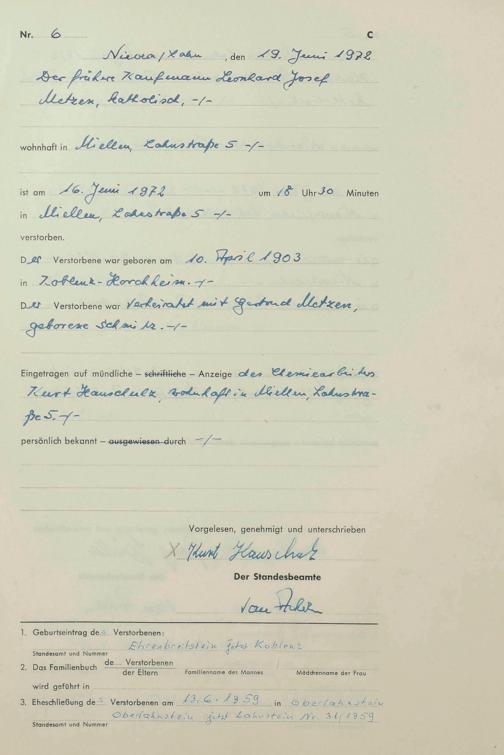 Nr. 6 C
Nievern/Lahn, den 19. Juni 1972
Der frühere Kaufmann Leonhard Josef
Metzen, katholisch, -/-
wohnhaft in Miellen, Lahnstraße 5 -/-
ist am 16. Juni 1972 um 18 Uhr 30 Minuten
in Miellen, Lahnstraße 5 -/-
verstorben.
Der Verstorbene war geboren am 10. April 1903
in Koblenz-Horchheim. -/-
Der Verstorbene war verheiratet mit Gertrud Metzen,
geborene Schmitz. -/-
Eingetragen auf mündliche – schriftliche – Anzeige des Chemiearbeiters
Kurt Hauschulz, wohnhaft in Miellen, Lahnstra-
ße 5. -/-
persönlich bekannt – ausgewiesen durch -/-
Vorgelesen, genehmigt und unterschrieben
X Kurt Hauschulz
Der Standesbeamte
1. Geburtseintrag des Verstorbenen:
Ehrenbreitstein jetzt Koblenz
Standesamt und Nummer
2. Das Familienbuch de Verstorbenen
der Eltern Familienname des Mannes Mädchenname der Frau
wird geführt in
3. Eheschließung des Verstorbenen am 13.6.1959 in Oberlahnstein
Oberlahnstein jetzt Lahnstein Nr. 31/1959
Standesamt und Nummer